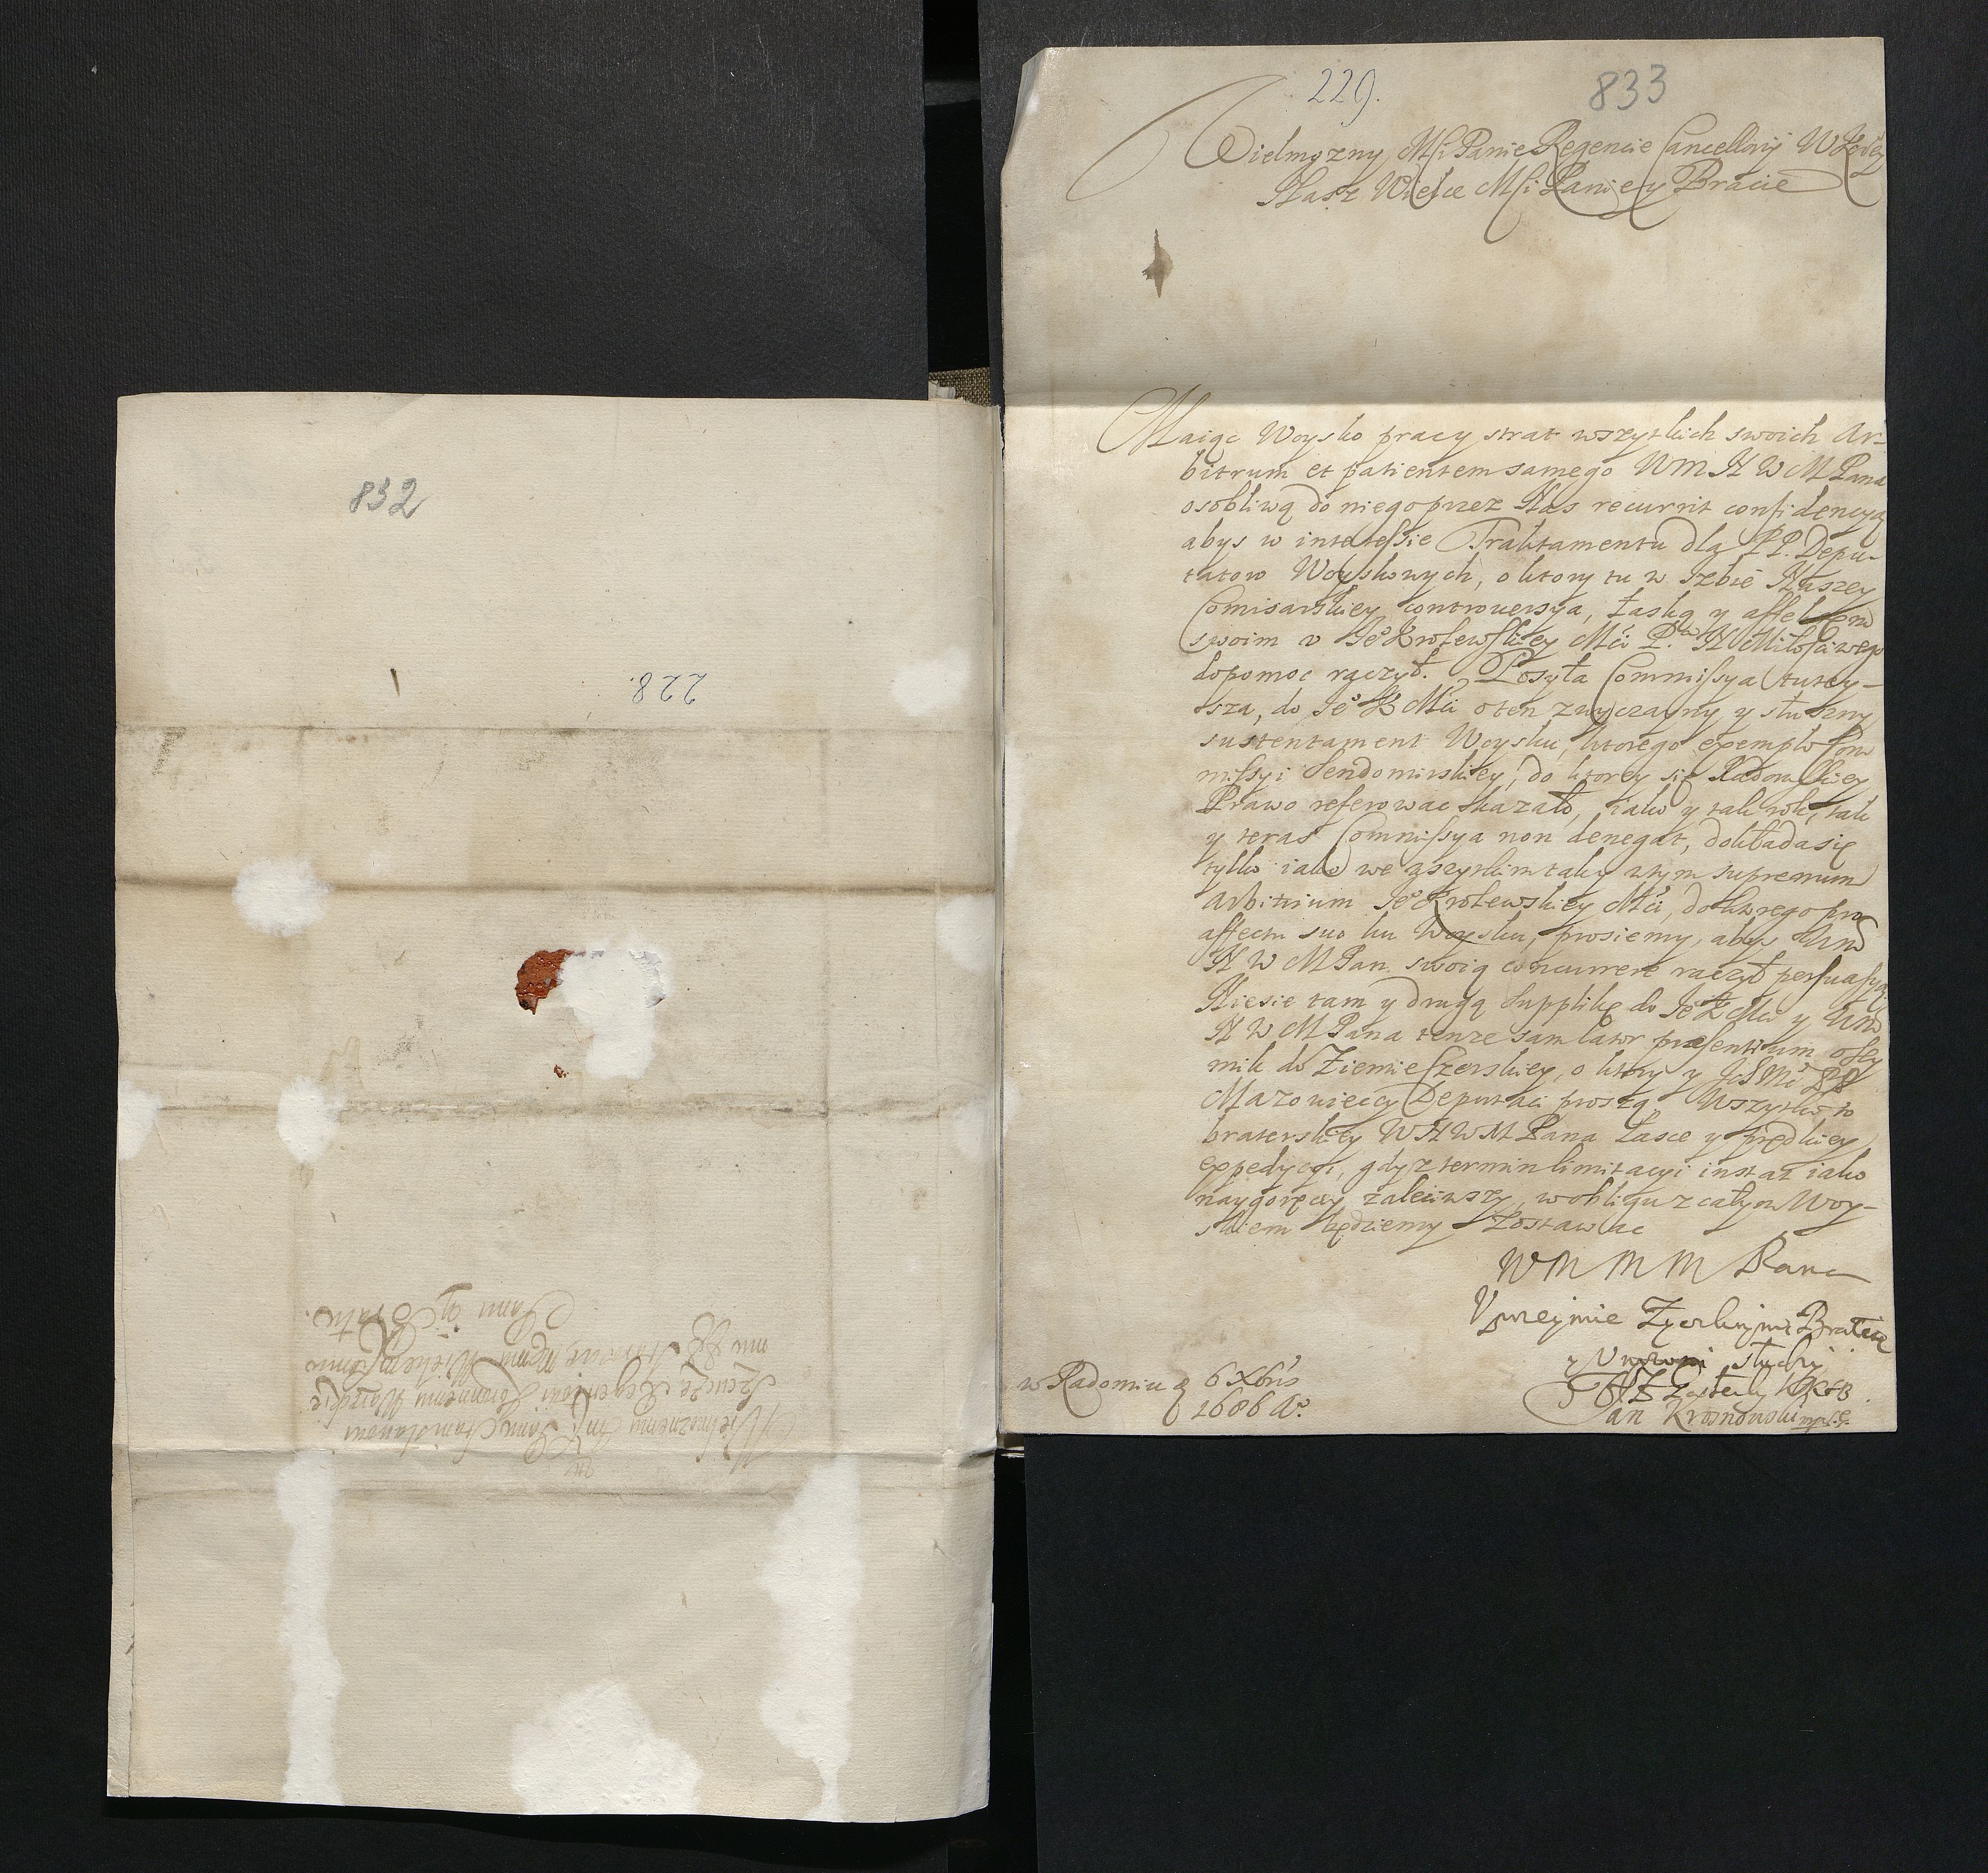 832
228.
Wielmoznemu Jm
Panu Stanisławowi
Szczuce Regentowi Koronnemu
Panu y Bratu.
229.
833
Wielmozny Mści Panie Regencie Cancellarij W Kor
Nasz Wielce Mści Panie y Bracie
Maiąc Woysko pracy strat wszytkich swoich Ar-
bitrum et patientem samego WM N W M Pana
osobliwą do niego przez Nas recurrit confidencyą
abys w interessie Traktamentu dla PP. Depu-
tatow Woyskowych, o ktory tu w Izbie Naszey
Comisarskiey controuersya, łaską y affektem
swoim v Jeo Krolewskiey Mći P. N Miłosciwego
dopomoc rączył. Posyła Commissya tutey-
sza, do Jeo K Mći o ten zwyczayny y słuszny
sustentament Woysku, ktorego exemplo Com
missyi Sendomirskiey, do ktorey się Radomskiey
Prawo referowac kazało, iako y tak rok, tak
y teras Commissya non denegat, dokłada się
tylko iako we wszytkim taky wtym supremum
Arbitrium Jeo Krolewskiey Mći, do ktorego pro
affectu suo ku Woysku, prosiemy, abys WM
N W M Pan swoią concurrere raczył persuasyą
Niesie tam y drugą Supplikę do Jeo K Mći y WM
N W M Pana tenze sam lator præsentium o Sey
mik do Ziemie Czerskiey, o ktory y Ich Mć PP
Mazowieccy Deputaci proszą. Wszytko to
braterskiey W N W M Pana Łasce y prędkiey
expedycyi, gdyz termin limitacyi instat iako
naygoręcey zaleciwszy, w obligu z całym Woy-
skiem będziemy zostawac
W M M M Pana
Vprzejmie Zyczliwymi Bracią
y słudzy
Jan Krosnowski mp
w Radomiu 6 Xbris
1686 Ao